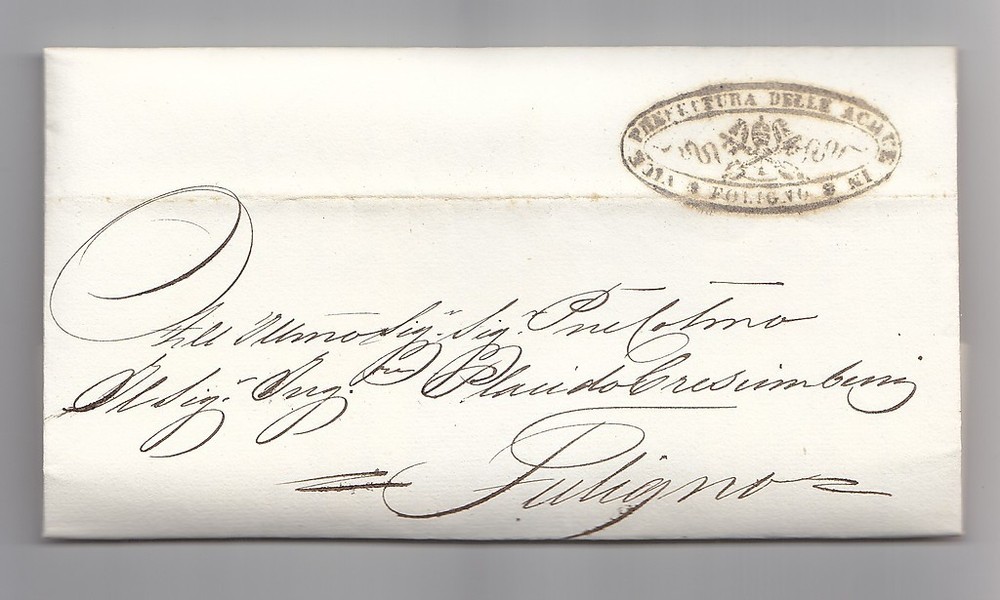 VICE PREFETTURA DELLE ACQUE IN
FOLIGNO
All'Illmo Sig.r Sig.r Pne Colmo
Il Sig.r Ing.re Placido Crescimbeni
Fuligno